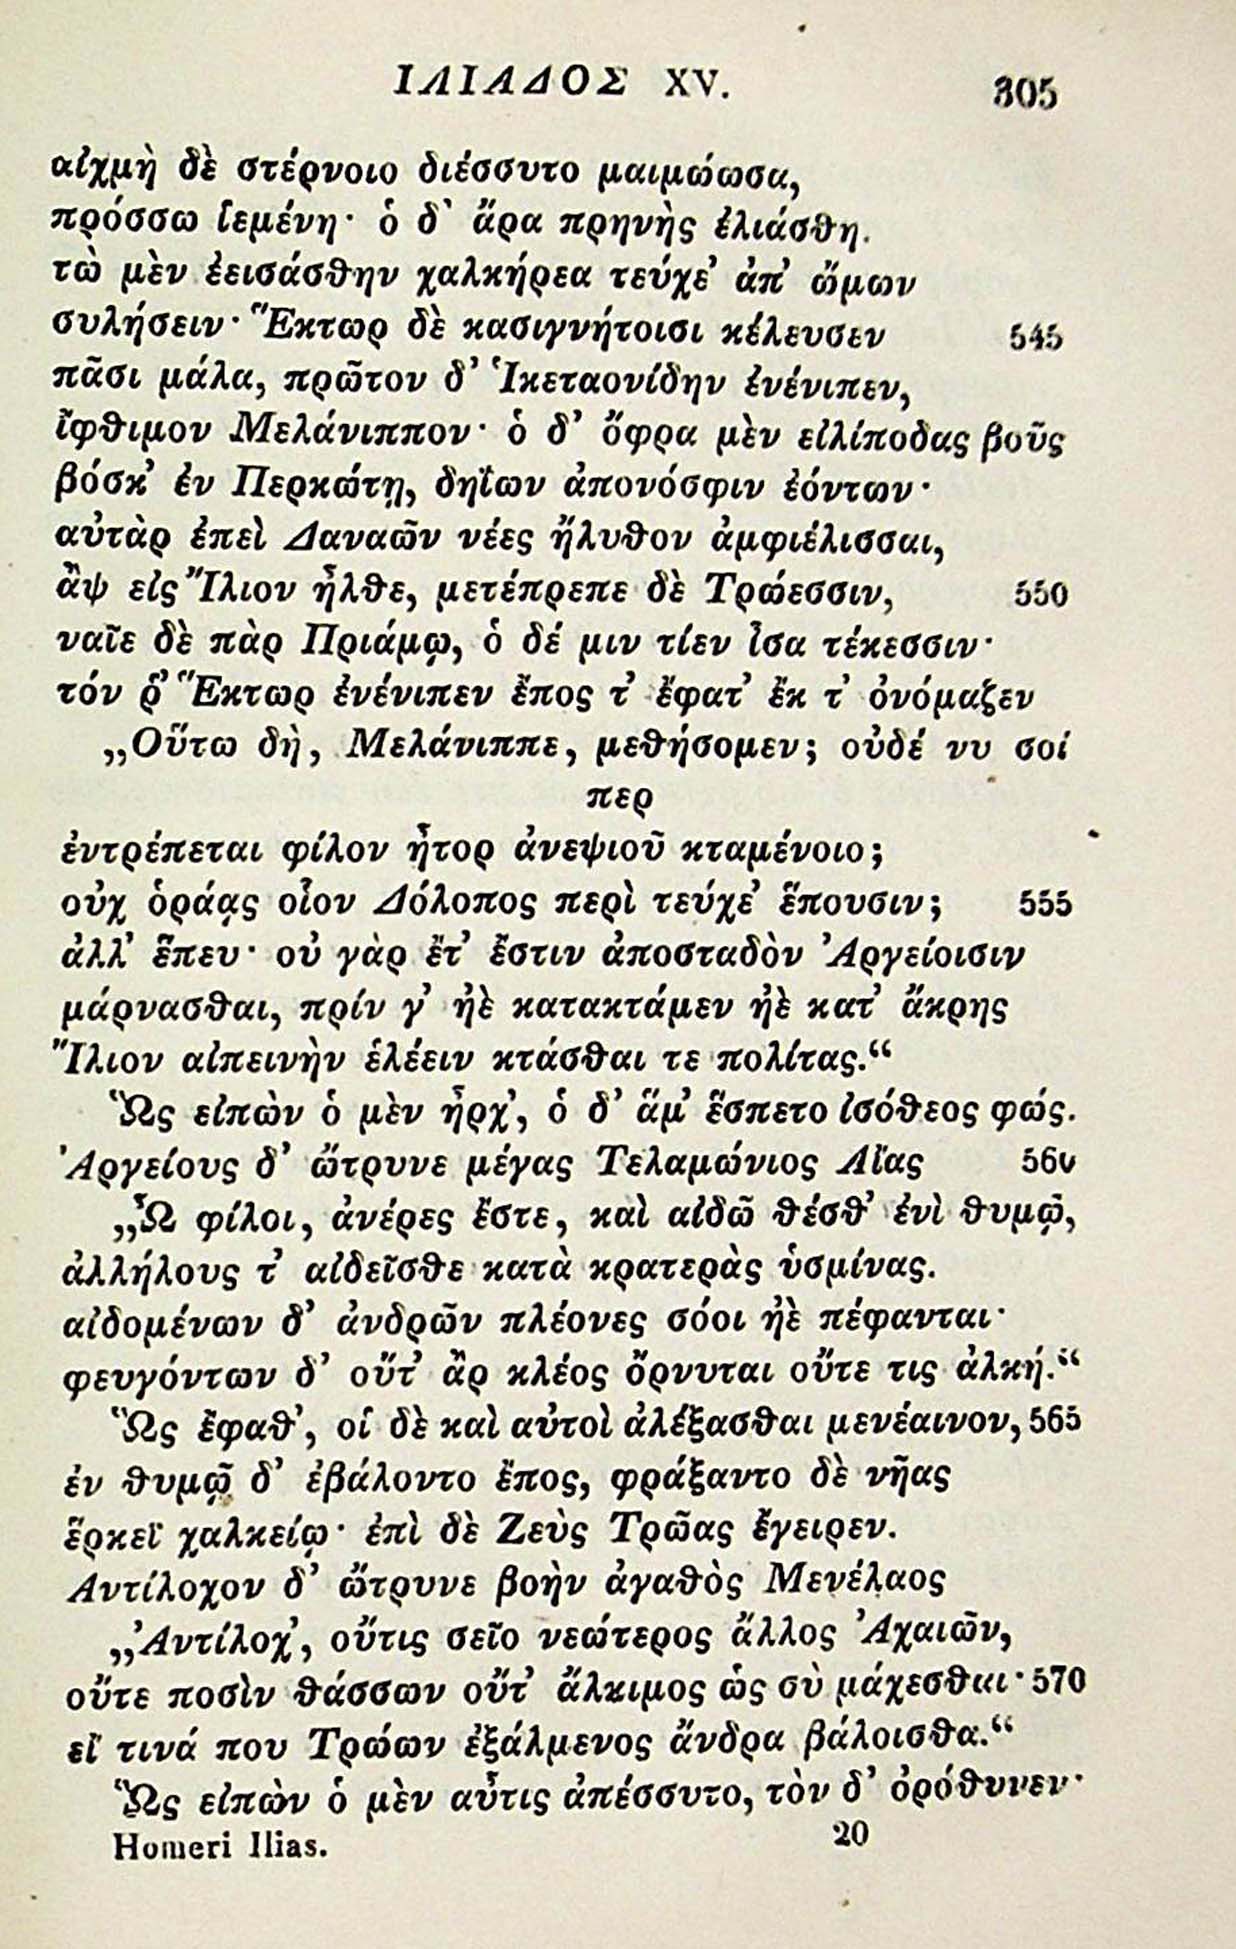 ΙΛΙΑΔΟΣ XV. 305
αἰχμὴ δὲ στέρνοιο διέσσυτο μαιμώωσα,
πρόσσω ἱεμένη· ὁ δ᾽ ἄρα πρηνὴς ἐλιάσθη.
τὼ μὲν ἐεισάσθην χαλκήρεα τεύχε᾽ ἀπ᾽ ὤμων
συλήσειν· Ἕκτωρ δὲ κασιγνήτοισι κέλευσεν 545
πᾶσι μάλα, πρῶτον δ᾽ Ἱκεταονίδην ἐνένιπεν,
ἴφθιμον Μελάνιππον· ὁ δ᾽ ὄφρα μὲν εἰλίποδας βοῦς
βόσκ᾽ ἐν Περκώτῃ, δηΐων ἀπονόσφιν ἐόντων·
αὐτὰρ ἐπεὶ Δαναῶν νέες ἤλυθον ἀμφιέλισσαι,
ἂψ εἰς Ἴλιον ἦλθε, μετέπρεπε δὲ Τρώεσσιν, 550
ναῖε δὲ πὰρ Πριάμῳ, ὁ δέ μιν τίεν ἶσα τέκεσσιν·
τόν ῥ᾽ Ἕκτωρ ἐνένιπεν ἔπος τ᾽ ἔφατ᾽ ἔκ τ᾽ ὀνόμαζεν
„Οὕτω δή, Μελάνιππε, μεθήσομεν; οὐδέ νυ σοί
περ
ἐντρέπεται φίλον ἦτορ ἀνεψιοῦ κταμένοιο;
οὐχ ὁράᾳς οἷον Δόλοπος περὶ τεύχε᾽ ἕπουσιν; 555
ἀλλ᾽ ἕπευ· οὐ γὰρ ἔτ᾽ ἔστιν ἀποσταδὸν Ἀργείοισιν
μάρνασθαι, πρίν γ᾽ ἠὲ κατακτάμεν ἠὲ κατ᾽ ἄκρης
Ἴλιον αἰπεινὴν ἑλέειν κτάσθαι τε πολίτας.“
Ὣς εἰπὼν ὁ μὲν ἦρχ᾽, ὁ δ᾽ ἅμ᾽ ἕσπετο ἰσόθεος φώς.
Ἀργείους δ᾽ ὤτρυνε μέγας Τελαμώνιος Αἴας 560
„Ὦ φίλοι, ἀνέρες ἔστε, καὶ αἰδῶ θέσθ᾽ ἐνὶ θυμῷ,
ἀλλήλους τ᾽ αἰδεῖσθε κατὰ κρατερὰς ὑσμίνας.
αἰδομένων δ᾽ ἀνδρῶν πλέονες σόοι ἠὲ πέφανται·
φευγόντων δ᾽ οὔτ᾽ ἂρ κλέος ὄρνυται οὔτε τις ἀλκή.“
Ὣς ἔφαθ᾽, οἱ δὲ καὶ αὐτοὶ ἀλέξασθαι μενέαινον, 565
ἐν θυμῷ δ᾽ ἐβάλοντο ἔπος, φράξαντο δὲ νῆας
ἕρκεϊ χαλκείῳ· ἐπὶ δὲ Ζεὺς Τρῶας ἔγειρεν.
Ἀντίλοχον δ᾽ ὤτρυνε βοὴν ἀγαθὸς Μενέλαος
„Ἀντίλοχ᾽, οὔτις σεῖο νεώτερος ἄλλος Ἀχαιῶν,
οὔτε ποσὶν θάσσων οὔτ᾽ ἄλκιμος ὡς σὺ μάχεσθαι· 570
εἴ τινά που Τρώων ἐξάλμενος ἄνδρα βάλοισθα.“
Ὣς εἰπὼν ὁ μὲν αὖτις ἀπέσσυτο, τὸν δ᾽ ὀρόθυνεν·
Homeri Ilias. 20